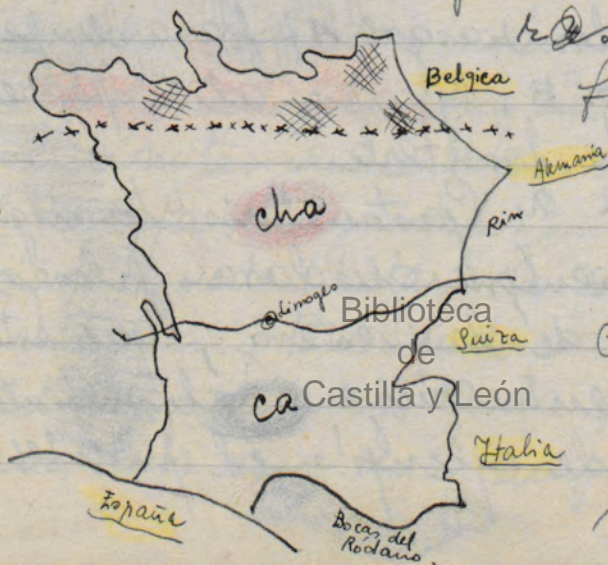 Belgica
Alemania
cha
Rin
Limoges
Biblioteca
de
Castilla y León
Suiza
ca
Italia
España
Bocas del
Ródano.